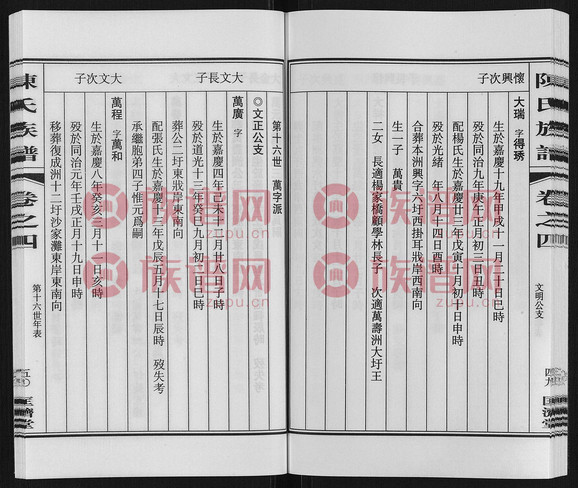 陳氏族譜
卷之四
文明公支
四九
匡濟堂
懷興次子
大瑞 字得琇
生於嘉慶十九年甲戌十一月二十日巳時
歿於同治九年庚午正月初三日丑時
配楊氏生於嘉慶廿三年戊寅十月初十日申時
歿於光緒 年八月十四日酉時
合葬本洲興字六圩西掛耳戕岸西南向
生一子 萬貴
二女 長適楊家橋顧學林長子 次適萬壽洲大圩王
第十六世 萬字派
◎文正公支
大文長子
萬廣 字
生於嘉慶四年己未十二月廿八日子時
歿於道光十三年癸巳九月初一日巳時
葬公二圩東戕岸東南向
配張氏生於嘉慶十三年戊辰五月十七日辰時 歿失考
承繼胞弟四子惟元爲嗣
大文次子
萬程 字萬和
生於嘉慶八年癸亥二月十一日亥時
歿於同治元年壬戌正月十九日申時
移葬復成洲十二圩沙家灘東岸東南向
陳氏族譜
卷之四
第十六世年表
五〇
匡濟堂
族譜网
zupu.cn
族譜网
zupu.cn